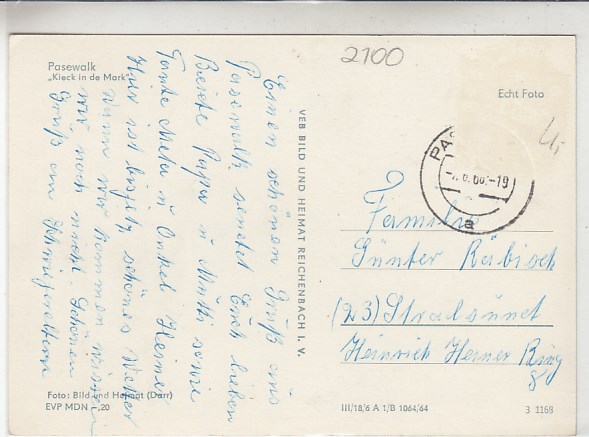 2100
Pasewalk
„Kieck in de Mark"
Echt Foto
Einen schönen Gruß aus
Pasewalk sendet Euch lieben
Beiete Papa u Mutti sowie
Tante Meta u Onkel Heiner
Hier ist bisjetz schönes Wetter
Wann wir kommen wissen
wir noch nicht. Schönen
Gruß an Schwiegereltern
VEB BILD UND HEIMAT REICHENBACH I. V.
PAS
a
Familie
Günter Räbisch
(23) Stralsund
Heinrich Heiner Ring
8
Foto: Bild und Heimat (Darr)
EVP MDN -,20
III/18/6 A 1/B 1064/64
3 1168